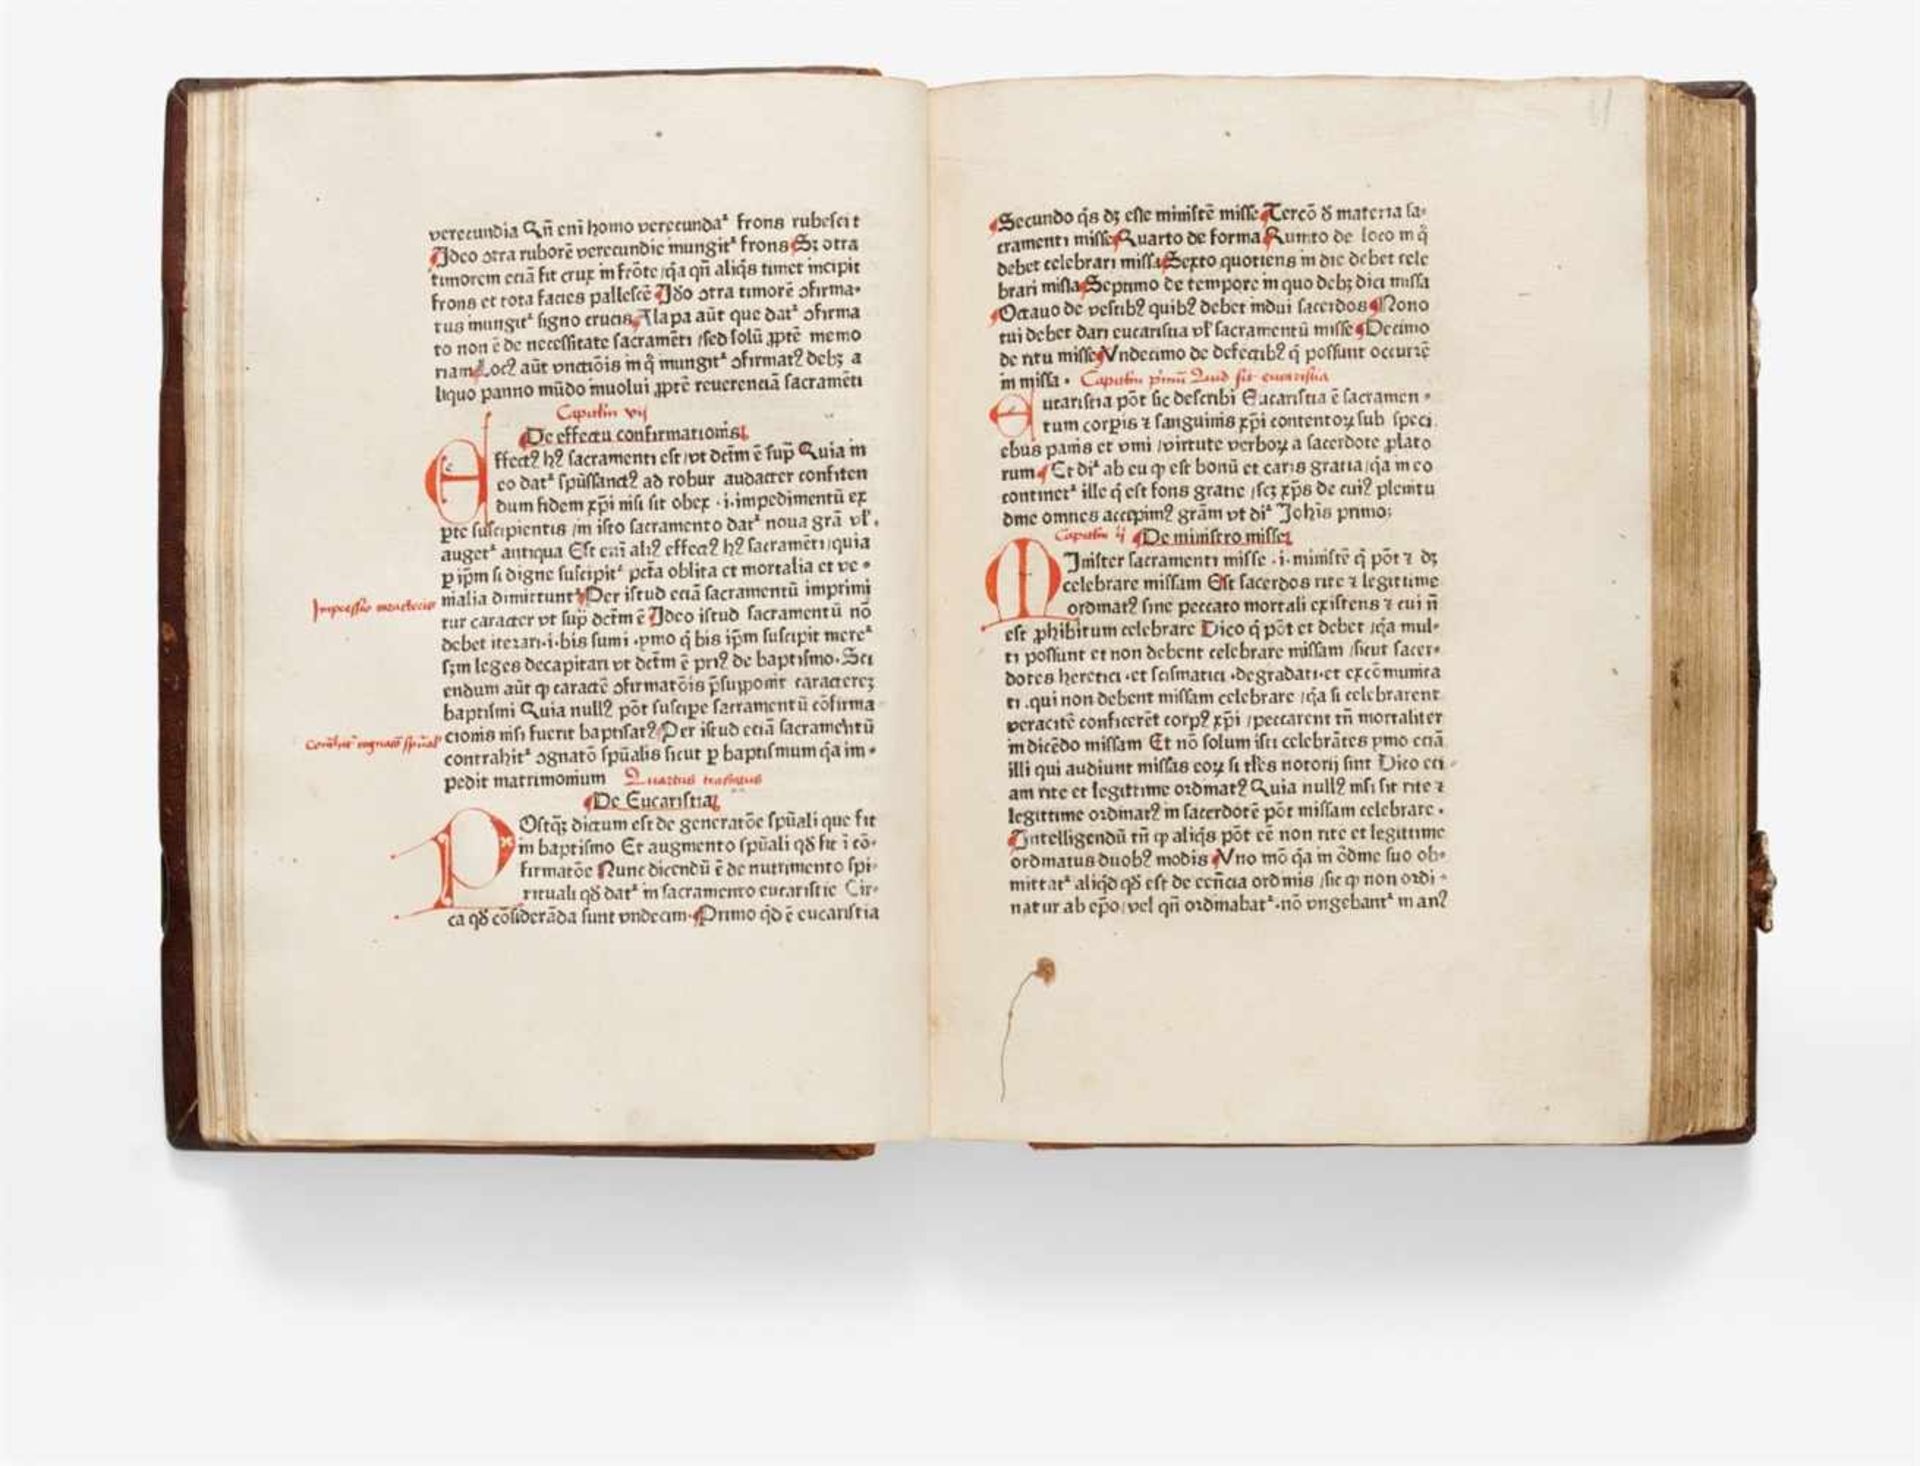 verecundia Qn̄ eni̅ homo verecundaᵗ frons rubescit
Ideo ꝯtra ruborē verecundie inungitᵗ frons Sꝫ ꝯtra
timorem eciā fit crux in frōte/q̇a qn̄ aliq̇s timet incipit
frons et tota facies pallescē Iđo ꝯtra timorē ꝯfirma⸗
tus inungitᵗ signo crucis Alapa aūt que datᵗ ꝯfirma
to non ē de necessitate sacramēti /sed solū ꝓptē memo
riam Locꝰ aūt vnctiōis in q̊ inungitᵗ ꝯfirmatꝰ debꝫ a
liquo panno mūdo inuolui ꝓptē reuerenciā sacramēti
Capitulum vij
De effectu confirmationis
Effectꝰ hꝰ sacramenti est /vt dc̄tm ē sup̄ Quia in
eo datᵗ sp̄ussanctꝰ ad robur audacter confiten
dum fidem xp̄i nisi sit obex ·i·impedimentū ex
pte suscipientis /in isto sacramento datᵗ noua grā vl̓
augetᵗ antiqua Est eni̅ aliꝰ effectꝰ hꝰ sacramēti/quia
ꝑ ip̄m si digne suscipitᵗ pctā oblita et mortalia et ve⸗
nialia dimittuntᵗ Per istud eciā sacramentū imprimi
Impressio caracteris
tur caracter vt sup̄ dc̄tm ē Ideo istud sacramentū nō
debet iterari·i·bis sumi ·ymo q̇ bis ip̄m suscipit mereᵗ
sꝫm leges decapitari vt dc̄tm ē priꝰ de baptismo·Sci
endum aūt ꝙ caractē ꝯfirmatōis p̄suppoīt caracterēꝫ
baptismi Quia nullꝰ pōt suscipe sacramentū cōfirma
cionis nisi fuerit baptisatꝰ Per istud eciā sacramētū
contrahitᵗ ꝯgnatō sp̄ualis sicut ꝑ baptismum q̇a im⸗
pedit matrimonium Quartus tractatus
De Eucaristia
POstq̄ꝫ dictum est de generatōe sp̄uali que fit
in baptismo Et augmento sp̄uali qđ fit i cō⸗
firmatōe Nunc dicendū ē de nutrimento spi⸗
rituali qđ datᵗ in sacramento eucaristie Cir⸗
ca qđ cōsiderāda sunt vndecim·Primo q̇d ē eucaristia
Secundo q̇s dꝫ esse ministē misse Tercō đ materia sa⸗
cramenti misse Quarto de forma Quinto de loco in q̊
debet celebrari missa Sexto quotiens in die debet cele
brari missa Septimo de tempore in quo debꝫ dici missa
Octauo de vestibꝰ quibꝰ debet indui sacerdos Nono
cui debet dari eucaristia vl̓ sacramentū misse Decimo
de ritu misse Vndecimo de defectibꝰ q̇ possunt occurrē
in missa · Capitulum primum Quid sit eucaristia
Eucaristia pōt sic describi Eucaristia ē sacramen⸗
tum corpis ⁊ sanguinis xp̄i contentoꝝ sub speci
ebus panis et vini /virtute verboꝝ a sacerdote ꝓlato
rum Et diᵗ ab eu ꝙ est bonū et caris gratia/q̇a in eo
continetᵗ ille q̇ est fons gratie /scꝫ xp̄s de cuiꝰ plenitu
dine omnes accepimꝰ grām vt diᵗ Johis primo;
Capitulum ij De ministro misse
MInister sacramenti misse ·i·ministē q̇ pōt ⁊ dꝫ
celebrare missam Est sacerdos rite ⁊ legittime
ordinatꝰ sine peccato mortali existens ⁊ cui n̄
est ꝓhibitum celebrare Dico q̇ pōt et debet /q̇a mul⸗
ti possunt et non debent celebrare missam /sicut sacer⸗
dotes heretici ·et scismatici ·degradati·et excōmunica
ti ·qui non debent missam celebrare /q̇a si celebrarent
veracitē conficerēt corpꝰ xp̄i /peccarent tn̄ mortaliter
in dicēdo missam Et nō solum isti celebrātes ymo eciā
illi qui audiunt missas eoꝝ si tales notorij sint Dico eci⸗
am rite et legittime ordinatꝰ Quia nullꝰ nisi sit rite ⁊
legittime ordinatꝰ in sacerdotē pōt missam celebrare ·
Intelligendū tn̄ ꝙ aliq̇s pōt eē non rite et legittime
ordinatus duobꝰ modis Vno mō q̇a in ōdine suo ob⸗
mittatᵗ aliq̇d qđ est de cēn̄cia ordinis /sic ꝙ non ordi⸗
natur ab ep̄o/vel qn̄ ordinabatᵗ·nō vngebantᵗ manꝰ